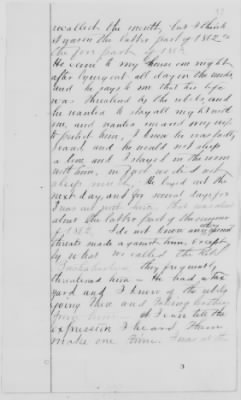 recollect the month, but I think
it was in the latter part of 1862 or
the fore part of 1863
He came to my house one night
after lying out all day in the woods
and he says to me that his life
was threatened by the rebels, and
he wanted to stay all night with
me, and wanted me and my wife
to protect him, I know he was badly
scared, and he would not sleep
alone, and I stayed in the room
with him, in fact we did not
sleep much, He layed out the
next day, and for several days for
I was out with him, that was
about the latter part of the summer
of 1862. I do not know any other
threats made against him, except
by what we called the Rebel
they frequently
threatened him - He had a tan
yard and I knew of the rebels
going there and taking leather
from him - I can tell the
expression I heard them
make one time. I was at the